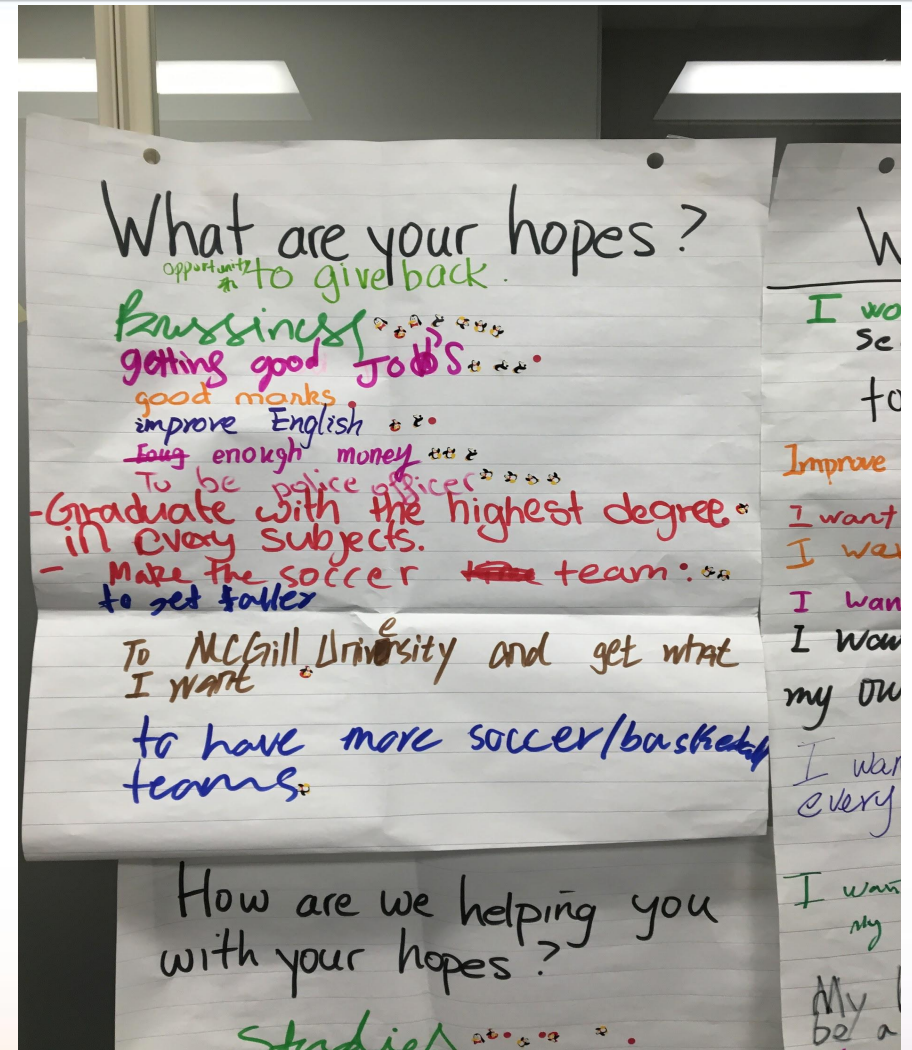 What are your hopes?
opportunity to give back.
Bussiness
getting good JOBS
good marks
improve English
enough money
To be police officer
-Graduate with the highest degree
in every subjects.
- Make the soccer team.
to get taller
To MCGill University and get what
I want
to have more soccer/basketball
teams
How are we helping you
with your hopes?
Studies
W
I wo
Se
to
Improve
I want
I wan
I wan
I wan
my ow
I wan
every
I wan
My
My
be a